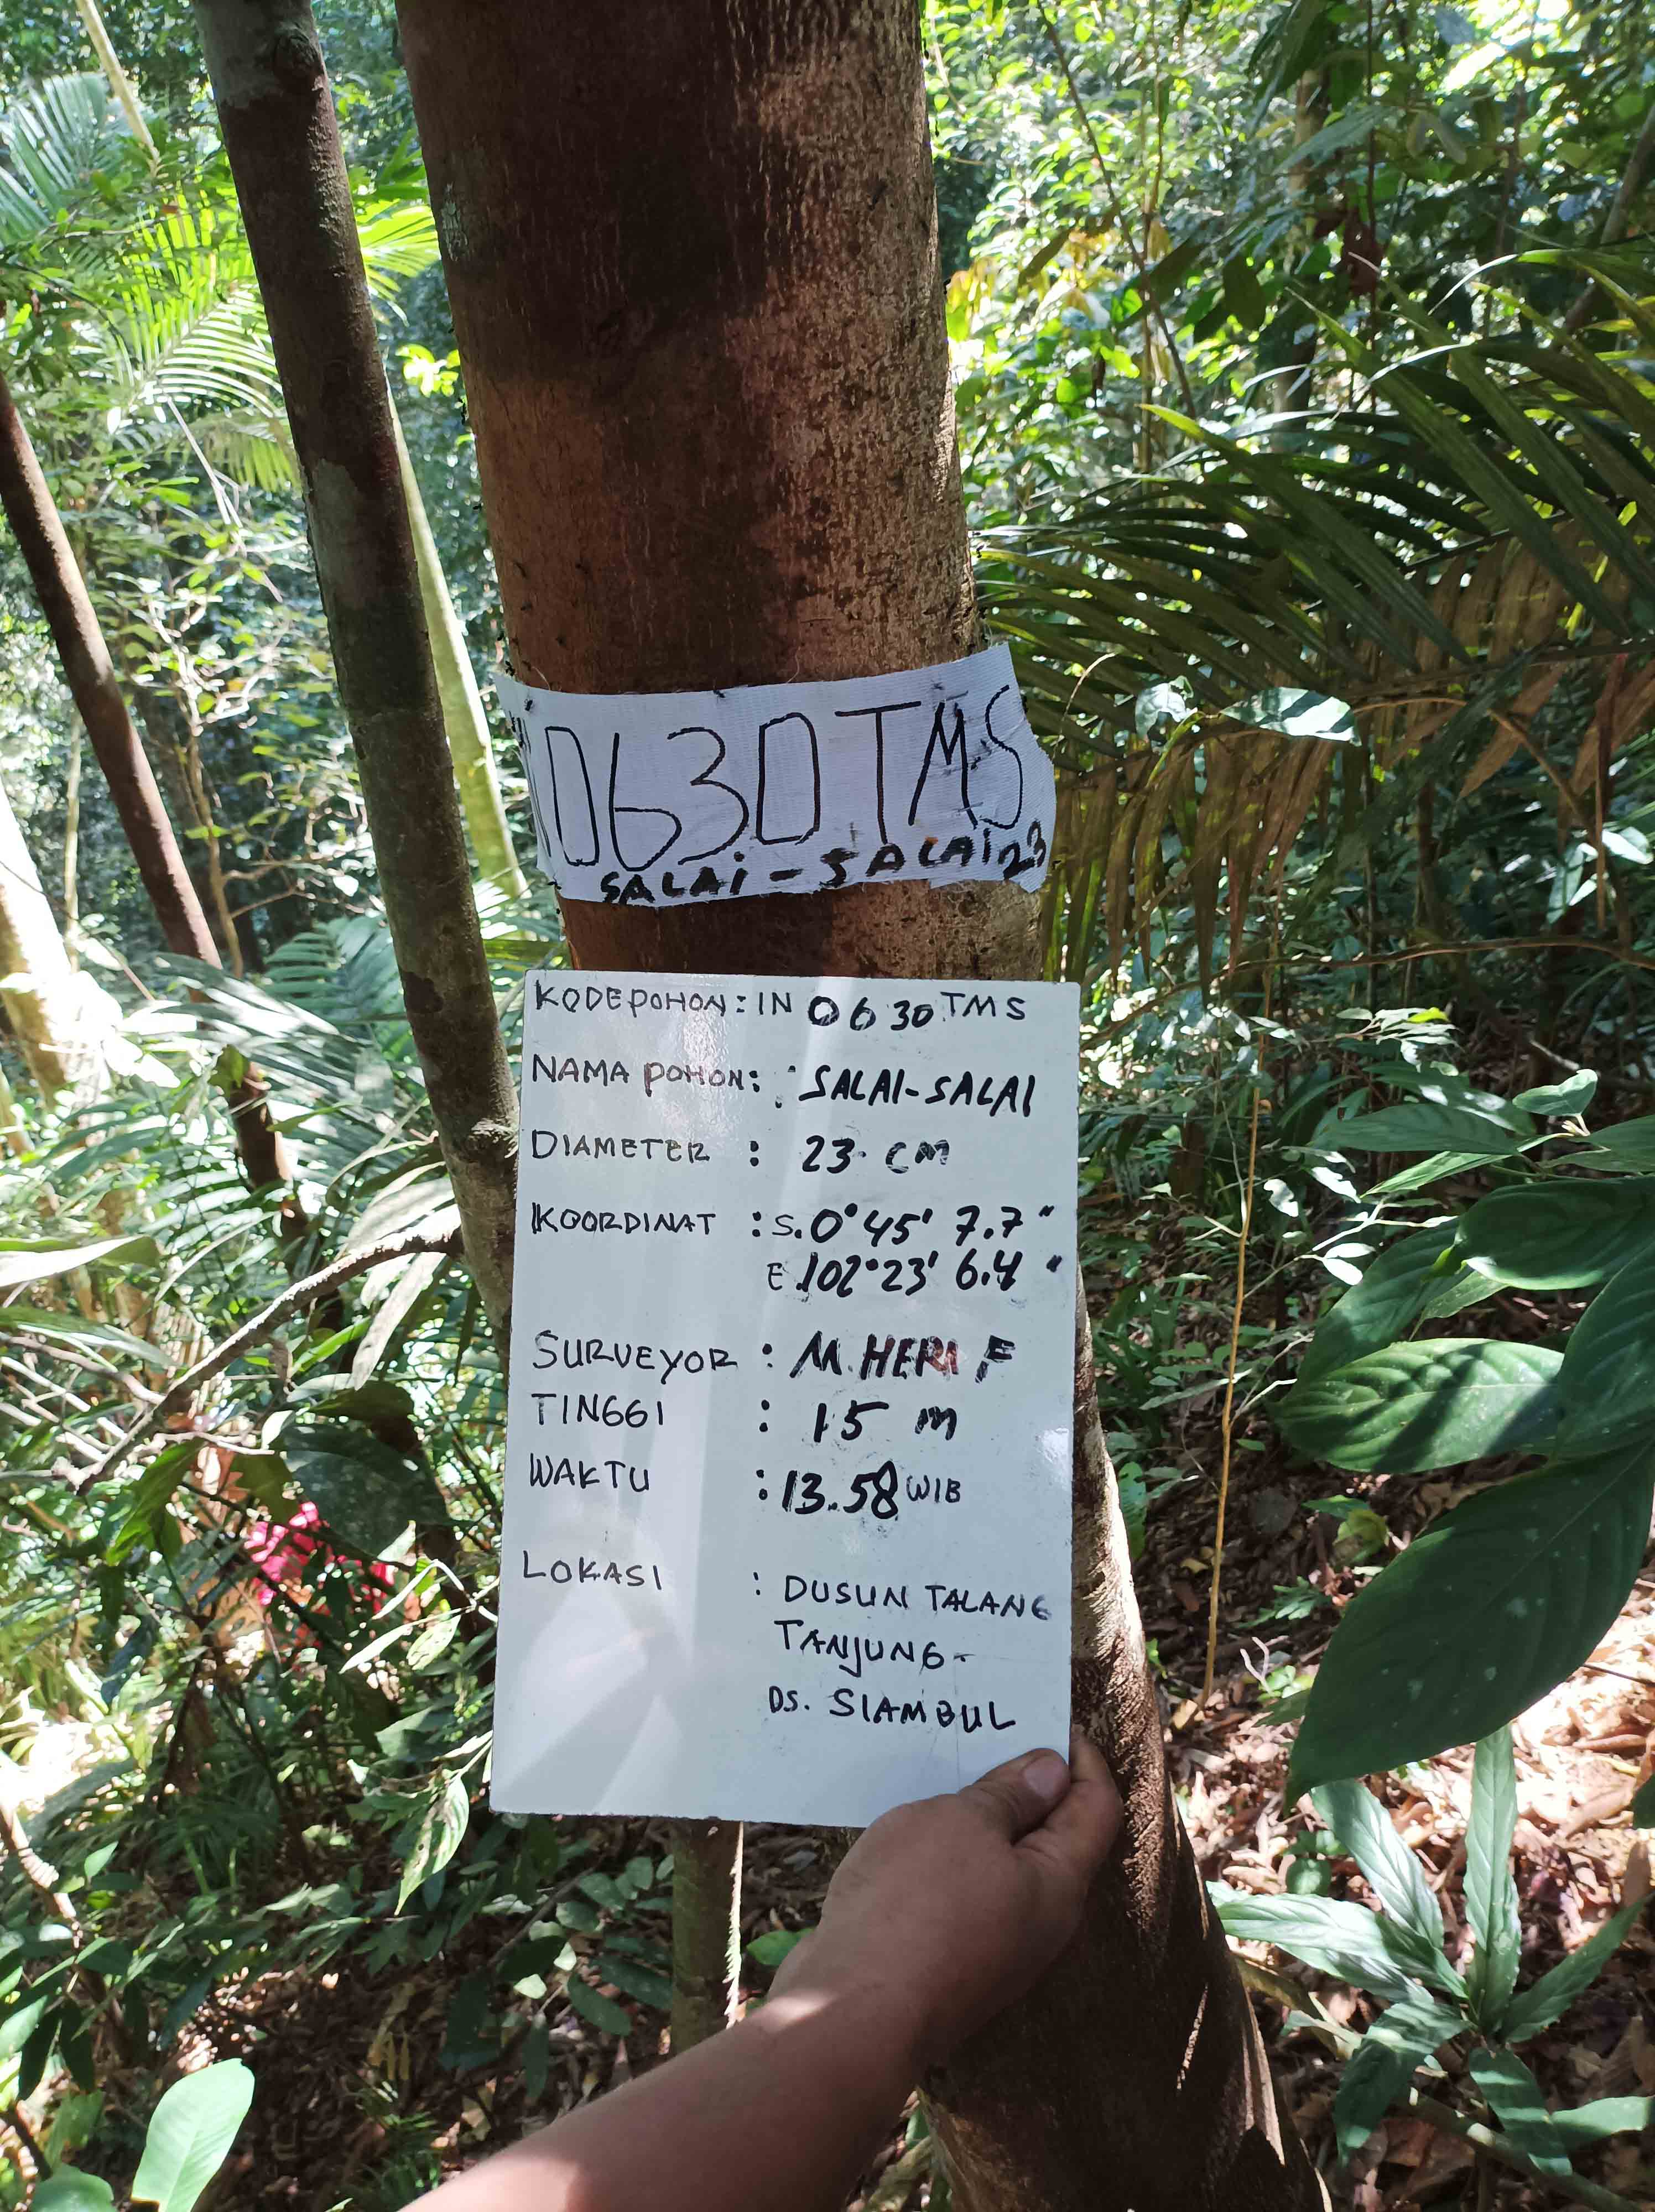 0630 TMS
SALAi - SALAI 23
KODE POHON : IN 0630 TMS
NAMA POHON : SALAI-SALAI
DIAMETER : 23 CM
KOORDINAT : S. 0° 45' 7.7"
E 102° 23' 6.4"
SURVEYOR : M. HERI F
TINGGI : 15 m
WAKTU : 13.58 WIB
LOKASI : DUSUN TALANG
TANJUNG-
DS. SIAMBUL